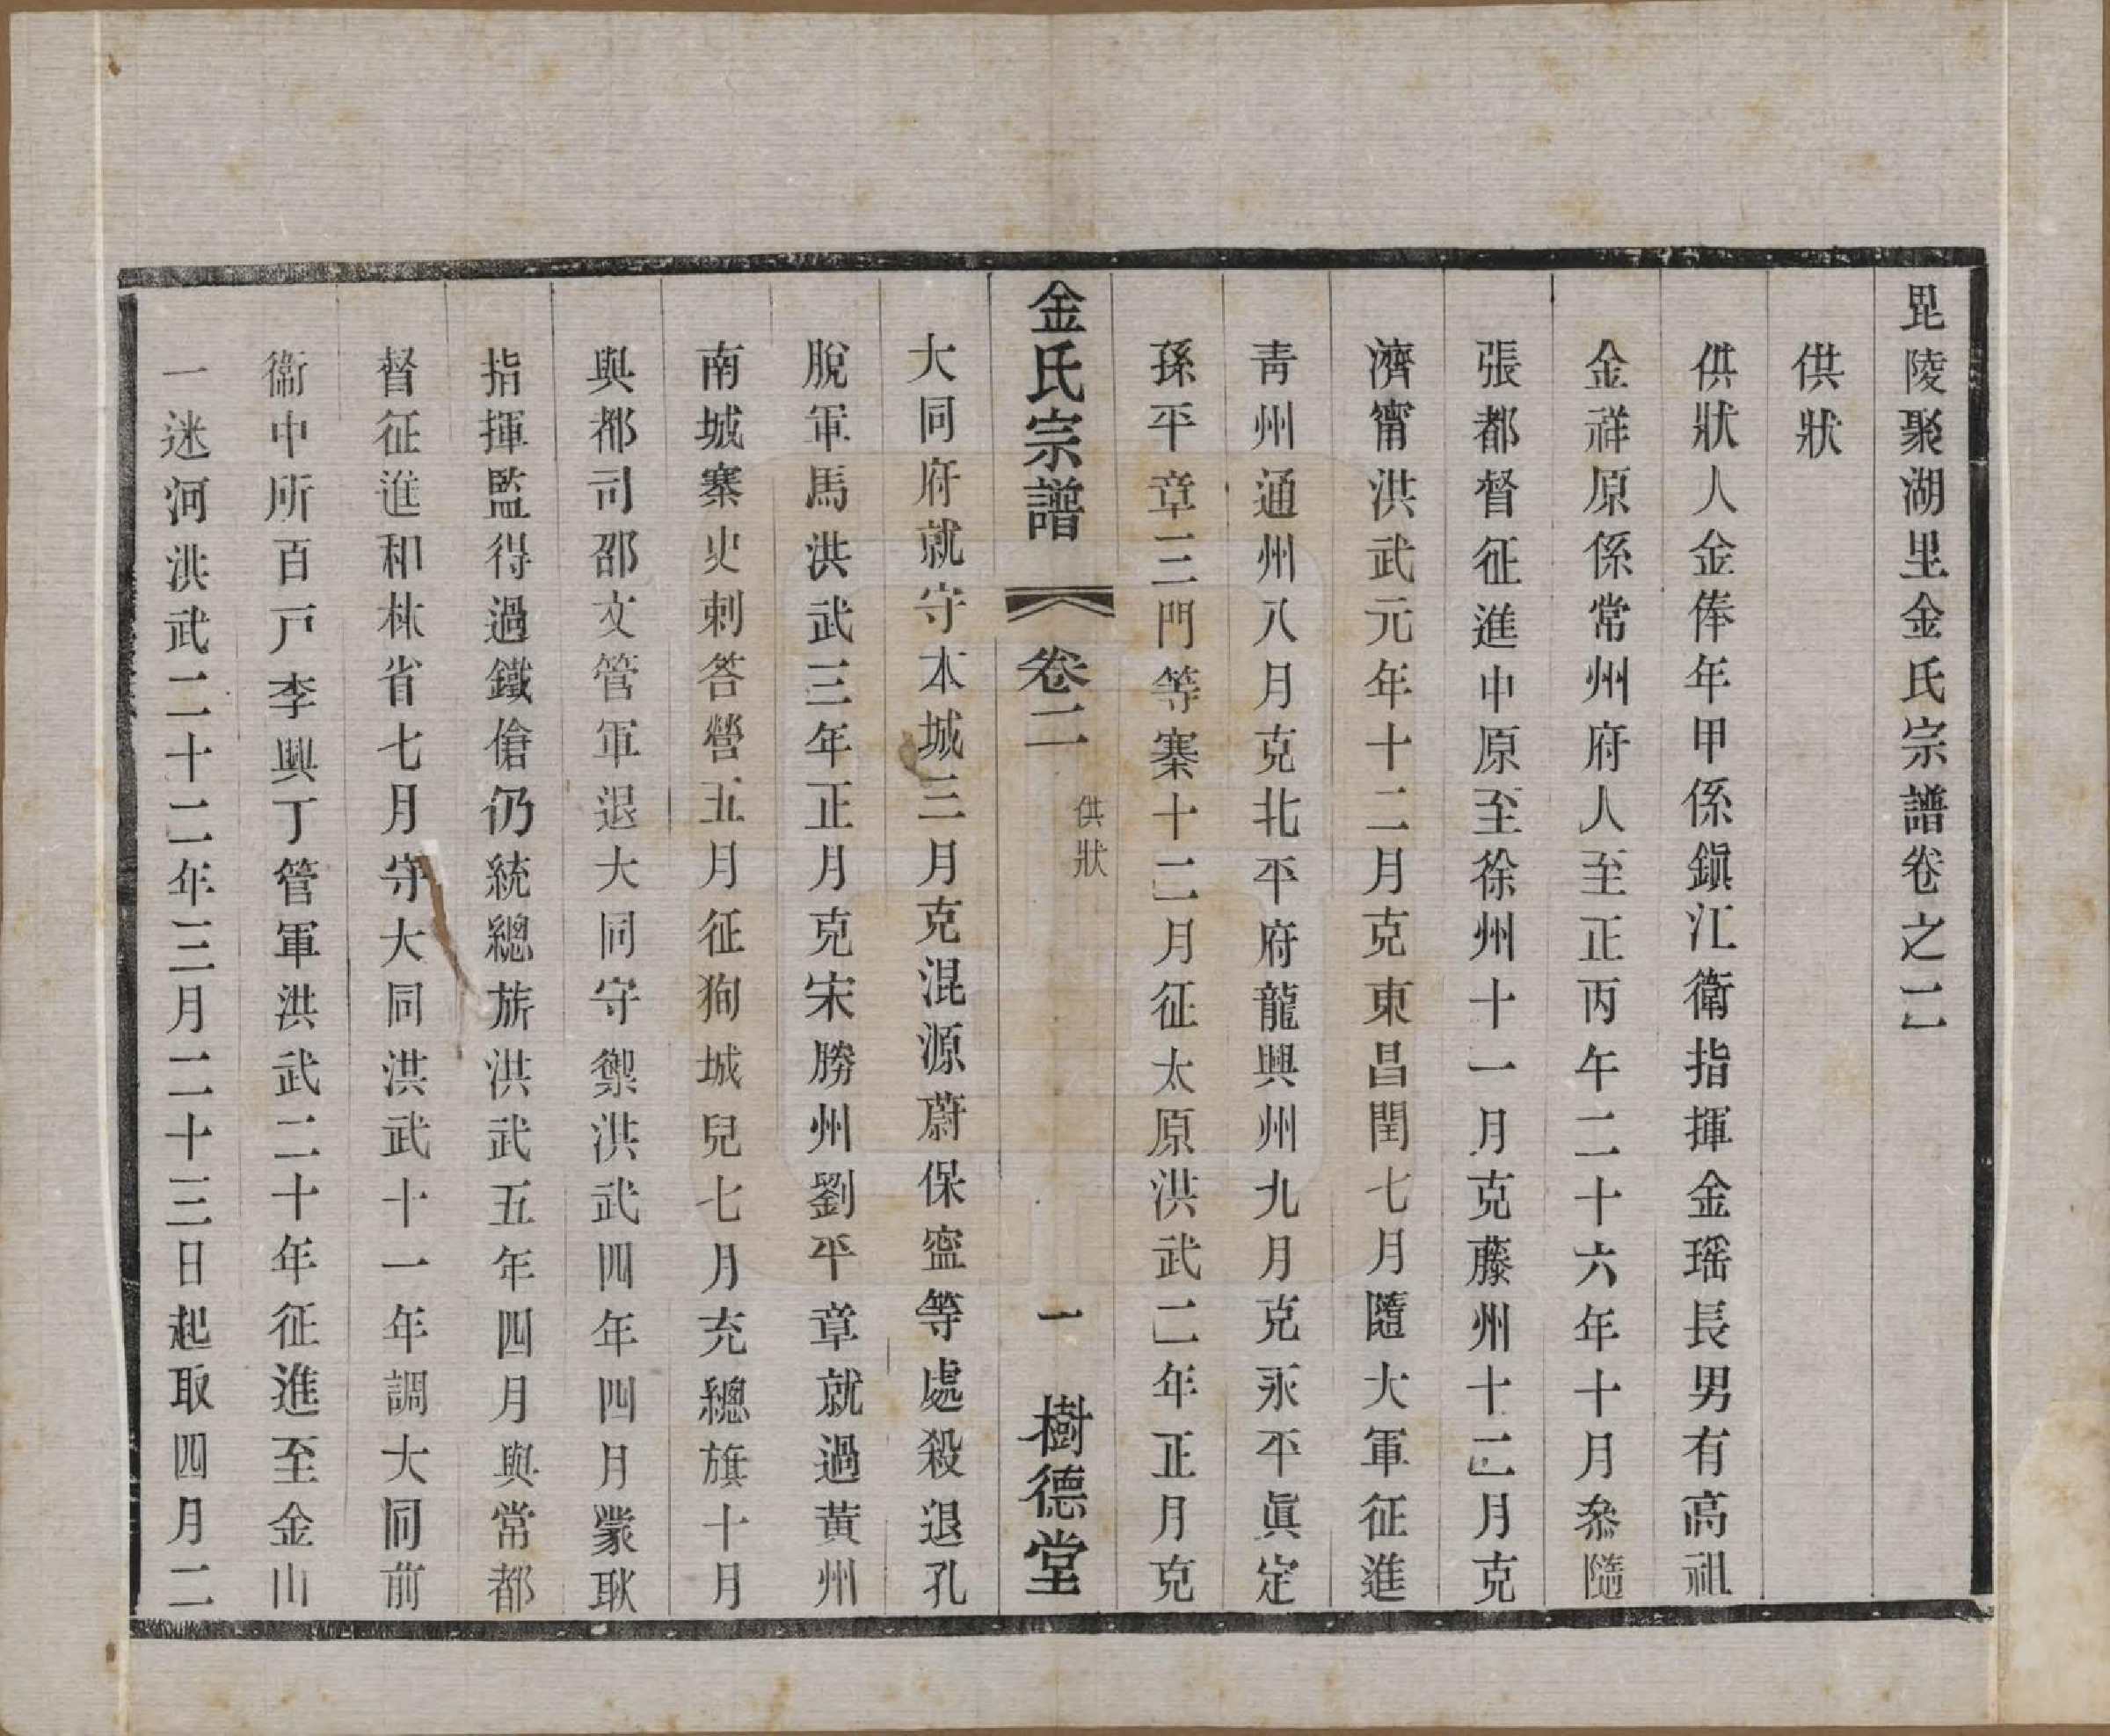 毘陵聚湖里金氏宗譜卷之二
供狀
供狀人金俸年甲係鎭江衛指揮金瑶長男有高祖
金祥原係常州府人至正丙午二十六年十月叅隨
張都督征進中原至徐州十一月克藤州十二月克
濟甯洪武元年十二月克東昌閏七月隨大軍征進
靑州通州八月克北平府龍興州九月克永平眞定
孫平章三門等寨十二月征太原洪武二年正月克
金氏宗譜 卷二 供狀 一 樹德堂
大同府就守本城三月克混源蔚保寧等處殺退孔
脫軍馬洪武三年正月克宋勝州劉平章就過黃州
南城寨史刺答營五月征狥城兒七月充總旗十月
與都司邵文管軍退大同守禦洪武四年四月蒙耿
指揮監得過鐵傖仍統總旂洪武五年四月與常都
督征進和林省七月守大同洪武十一年調大同前
衞中所百戸李興丁管軍洪武二十年征進至金山
一迷河洪武二十二年三月二十三日起取四月二